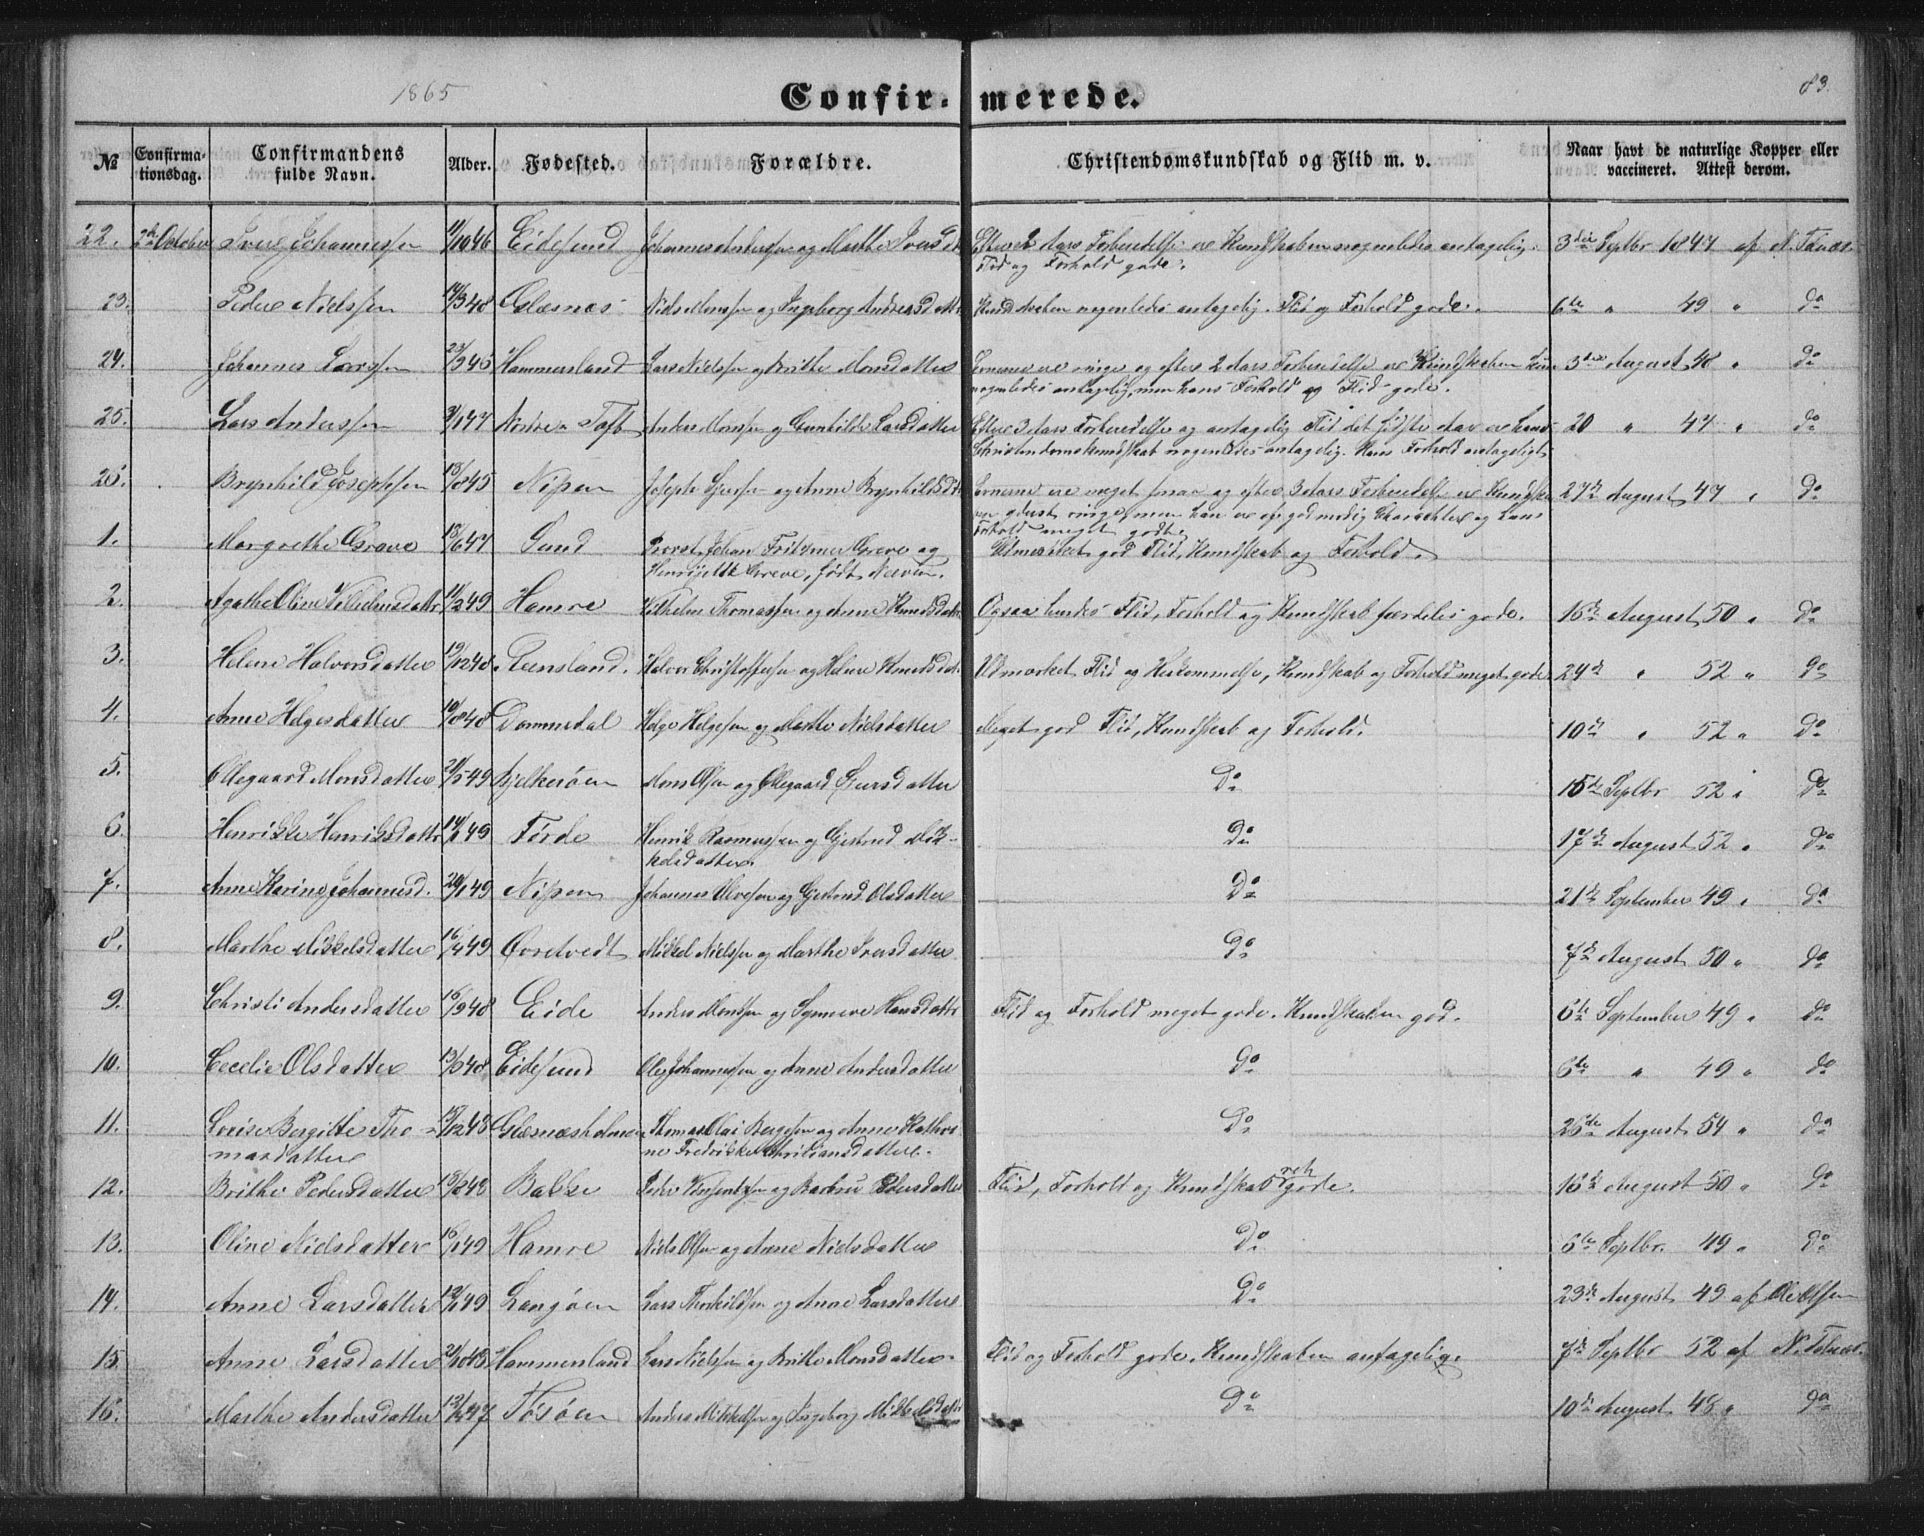 1865
Confir- merede.
83.
№
Confirma-
tionsdag.
Confirmandens
fulde Navn.
Alder.
Fødested.
Forældre.
Christendomskundskab og Flid m. v.
Naar havt de naturlige Kopper eller
vaccineret. Attest derom.
22. October Iver Johannessen 46 Eidesund Johannes Anderssen og Marthe Iversd. Efter 2 Aars Forberedelse er Kundskaben nogenledes antagelig. 3die Septbr 1847 af N.
Flid og Forhold gode.
23. Peder Nielssen 48 Glæsnæs Niels Monssen og Ingeborg Andersdatter Kundskaben nogenledes antagelig. Flid og Forhold gode. 6te " 49 " Do
24. Johannes Larssen Hammersland Lars Nielssen og Brithe Monsdatter Evnerne ere ringe og efter 2 Aars Forberedelse er Kundskaben kun 3die August 48 " Do
nogenledes antagelig, men hans Forhold og Flid gode.
25. Lars Anderssen 47 Toft Anders Monssen og Gunhilde Larsdatter Efter 3 Aars Forberedelse og antagelig Flid det sidste Aar er hans 20 " 47 " Do
Christendomskundskab nogenledes antagelig. Hans Forhold antageligt
26. Brynhild Josephsen 45 Nipen Joseph og Anne Brynhildsd. Evnerne ere meget smaa og efter 3 Aars Forberedelse er Kundska- 27de August 47 " Do
ben yderst ringe, men han er af godmodig Charachter og hans
Forhold meget godt.
1. Margrethe Greve 47 Sund Provst Johan Fritzner Greve og Udmærket god Flid, Kundskab og Forhold.
Henriette Greve, født
2. Agathe Oline Vilhelmsdattr 49 Hamre Vilhelm Thomassen og Anne Knudsdatter Ogsaa hendes Flid, Forhold og Kundskab særdeles gode. 16de August 50 " Do
3. Helene Halvorsdatter 48 Halvor Christoffersen og Helene Udmærket Flid og Kundskab og Forhold meget gode 24de " 52 " Do
4. Anne Helgesdatter 10/8 48 Dommedal Helge Helgesen og Marthe Nielsdatter Meget god Flid, Kundskab og Forhold. 10de " 52 " Do
5. Ollegaard Monsdatter 49 Bjelkerøen Mons Olsen og Ollegaard Sjursdatter Do 15de Septbr 52 " Do
6. Henrikke Henriksdattr 49 Førde Henrik Rasmussen og Gjertrud Mik- Do 17de August 52 " Do
kelsdatter.
7. Anne Karine Johannesd. 49 Nipen Johannes og Gjertrud Olsdatter Do 21de September 49 " Do
8. Marthe Mikkelsdatter 16/4 49 Øvretvedt Mikkel Nielssen og Marthe Iversdatter Do 7de August 50 " Do
9. Christi Andersdatter 16/9 48 Eide Anders Monssen og Synneve Hansdattr Flid og Forhold meget gode. Kundskaben god. 6te September 49 " Do
10. Cecelie Olsdatter 48 Eidesund Ole Johannessen og Anne Andersdatter Do 6te " 49 " Do
11. Lovise Bergitte Tho- 48 Glæsnæsholmen Thomas Olai Børgesen og Anne Kathri- Do 26de August 54 " Do
masdatter ne Fredrikke Christiansdatter.
12. Brithe Pedersdatter 48 Bakke Peder og Barbru Pedersdatter Flid, Forhold og Kundskab ret gode. 16de August 50 " Do
13. Oline Nielsdatter 49 Hamre Niels Olsen og Anne Nielsdatter Do 6te Septbr. 49 " Do
14. Anne Larsdatter 49 Langøen Lars Thorkildsen og Anne Larsdatter Do 23de August 49 af Ole Olsen
15. Anne Larsdatter 48 Hammersland Lars Nielssen og Brithe Monsdatter. Flid og Forhold gode. Kundskaben antagelig. 7de Septbr 52 af N.
16. Marthe Andersdatter 47 Tøsøen Anders Mikkelsen og Ingeborg Mikkelsdatter Do 10de August 48 " Do